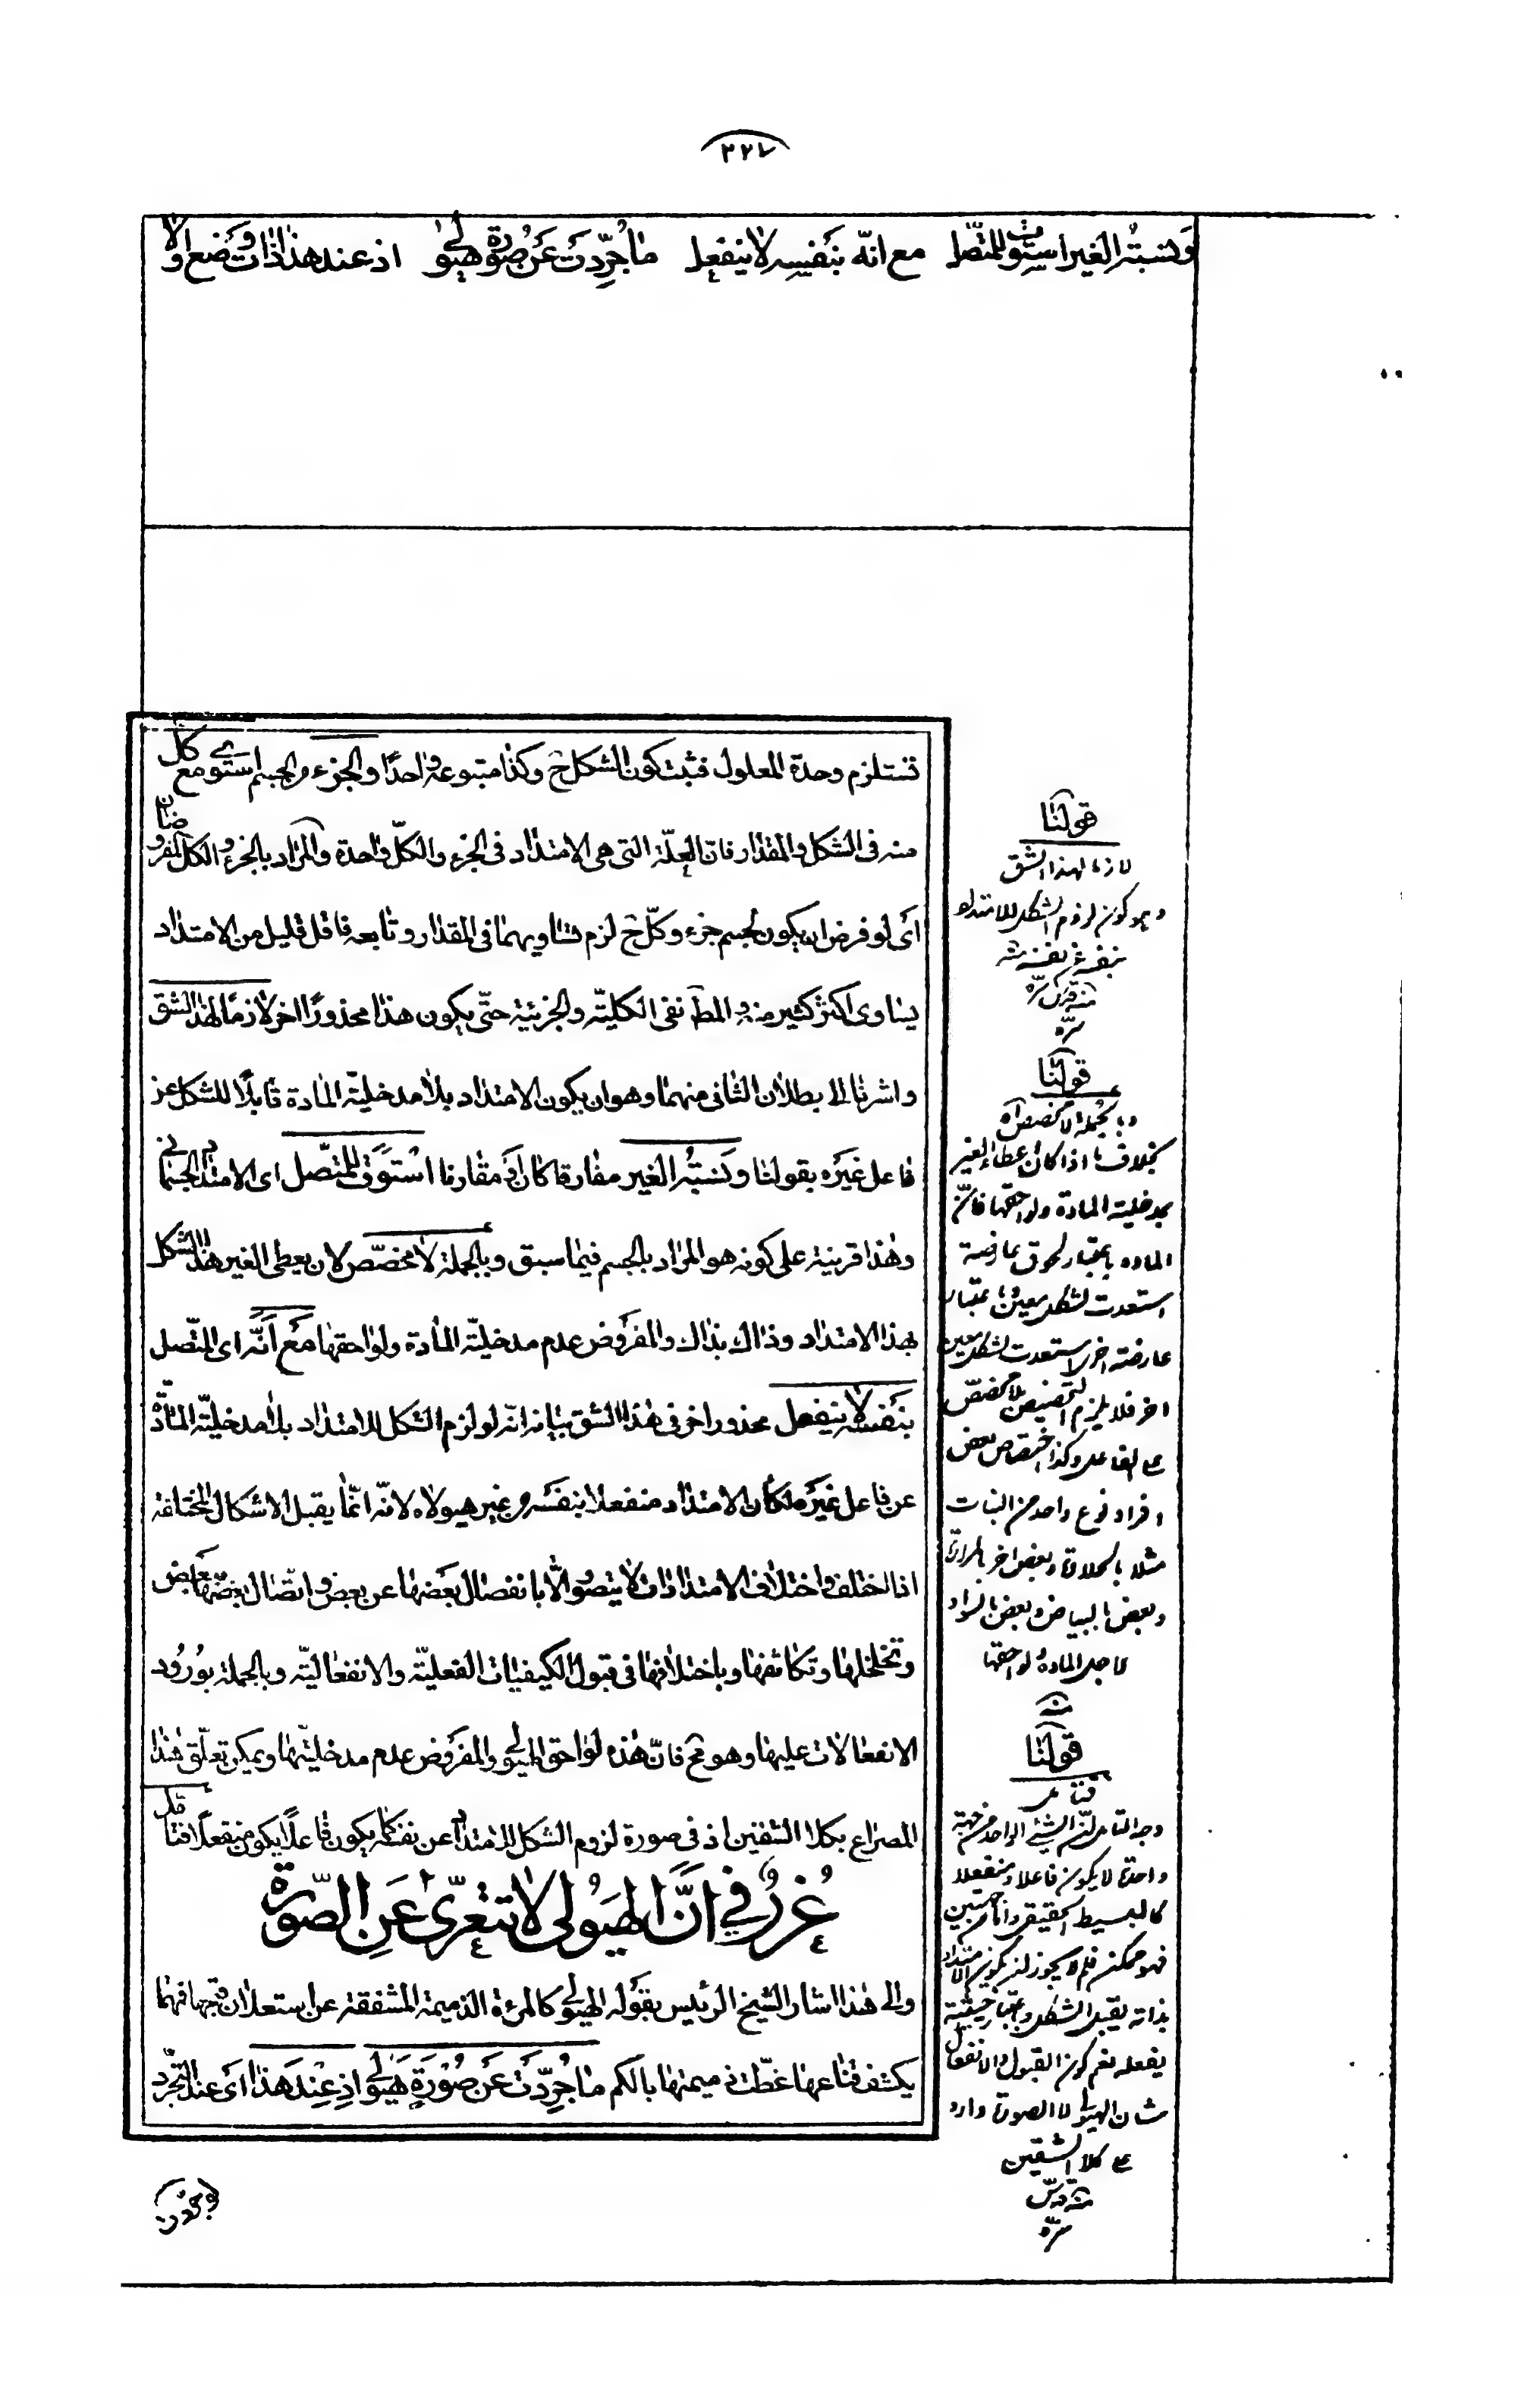 ٢٢٧
ونسبة الغير استوت للمتصل مع انّه بنفسه لا ينفعل ما جرّدت عن صورة هيولى اذ عند هذا ذات وضع او لا
تستلزم وحدة المعلول فثبت كون الشكل ح وكذا متبوعه واحدًا والجزء والجسم استوى مع كل
منه فى الشكل والمقدار فانّ العلّة التى هى الامتداد فى الجزء والكلّ واحدة والمراد بالجزء والكل المفروضان
اى لو فرض ان يكون لجسم جزء وكلّ ح لزم تساويهما فى المقدار وتابعه فاقل قليل من الامتداد
يساوى اكثر كثير منه والمط نفى الكليّة والجزئية حتّى يكون هذا محذورًا اخر لازمًا لهذا الشق
واشرنا الى بطلان الثانى منهما وهو ان يكون الامتداد بلا مدخليّة المادة قابلًا للشكل عن
فاعل غيره بقولنا ونسبة الغير مفارقا كان او مقارنا استوت للمتّصل اى الامتداد الجسمانى
وهذا قرينة على كونه هو المراد بالجسم فيما سبق وبالجملة لا مخصّص لان يعطى الغير هذا الشكل
لهذا الامتداد وذاك بذاك والمفروض عدم مدخليّة المادة ولواحقها مع انّه اى المتّصل
بنفسه لا ينفعل محذور اخر فى هذا الشق بيانه انّه لو لزم الشكل للامتداد بلا مدخليّة المادّة
عن فاعل غيره لكان الامتداد منفعلا بنفسه من غير هيولاه لانّه انّما يقبل الاشكال المختلفة
اذا اختلف واختلاف الامتدادات لا يتصوّر الّا بانفصال بعضها عن بعض واتّصال بعضها ببعض
وتخلخلها وتكاثفها وباختلافها فى قبول الكيفيات الفعليّة والانفعاليّة وبالجملة بورود
الانفعالات عليها وهو مح فانّ هذه لواحق الهيولى والمفروض عدم مدخليّتها ويمكن تعلّق هذا
المصراع بكلا الشقين اذ فى صورة لزوم الشكل للامتداد عن نفسه كما يكون فاعلًا يكون منفعلًا فتامّل
غُررٌ في انَّ الهيَولى لا تتعرّى عَنِ الصّورة
والى هذا اشار الشيخ الرئيس بقوله الهيولى كالمرءة الذميمة المشفقة عن استعلان قبحها فهما
يكشف قناعها غطّت ذميمتها بالكم ما جُرّدت عن صُورَةٍ هَيُولى اذ عِند هَذا اى عند التجرّد
قولنا
لازما لهذا الشق
وهو كون لزوم الشكل للامتداد
بنفسه عن نفسه منه
قدّس سرّه
سرّه
قولنا
وبالجملة لا مخصص اه
بخلاف ما اذا كان اعطاء الغير
بمدخلية المادة ولواحقها فانّ
المادة باعتبار لحوق عارضة
استعدت لشكل معين وباعتبار
عارضة اخرى استعدت لشكل معين
اخر فلا يلزم التخصيص بلا مخصّص
على الفاعل وكذا اختصاص بعض
افراد نوع واحد من النبات
مثلا بالحلاوة وبعض اخر بالمرارة
وبعض بالبياض وبعض بالسواد
لاجل المادة ولواحقها
منه
قولنا
فتامل
وجه التامل انّ الشئ الواحد من جهة
واحدة لا يكون فاعلا ومنفعلا
كالبسيط الحقيقى واما من جهتين
فهو ممكن فلم لا يجوز ان يكون الامتداد
بذاته يقبل الشكل وباعتبار حيثية
يفعله نعم كون القبول والانفعال
شان الهيولى لا الصورة وارد
على كلا الشقين
منه قدّس
سرّه